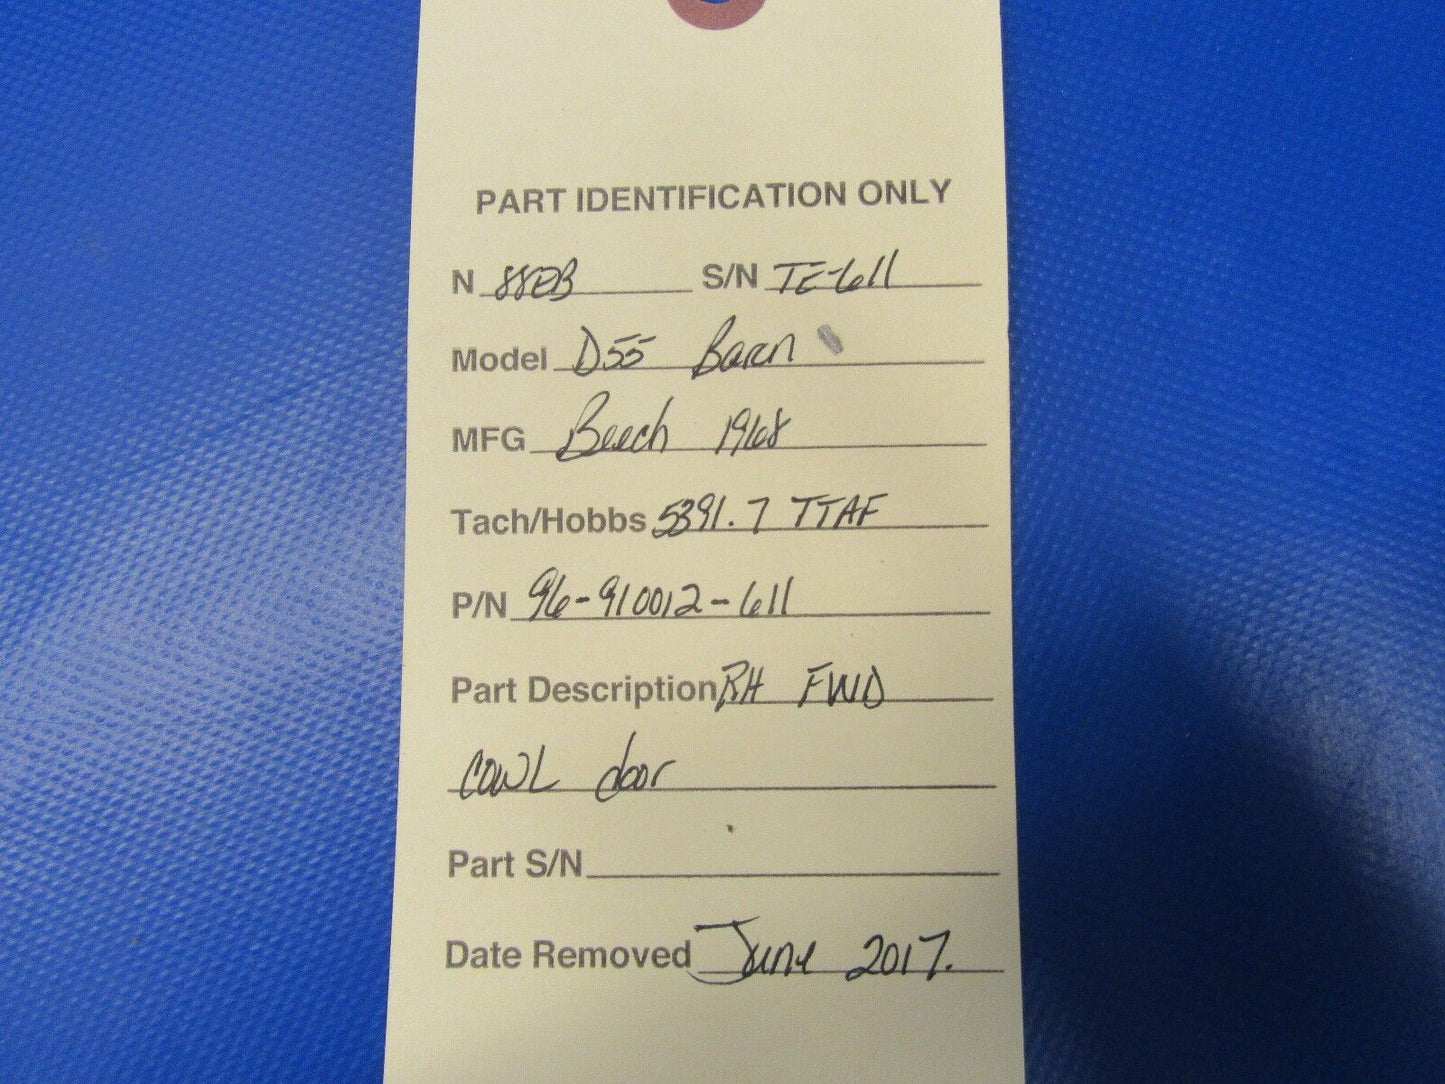 PART IDENTIFICATION ONLY
N 88EB S/N TE-611
Model D55 Baron
MFG Beech 1968
Tach/Hobbs 5391.7 TTAF
P/N 96-910012-611
Part Description RH FWD
COWL door
Part S/N
Date Removed June 2017.